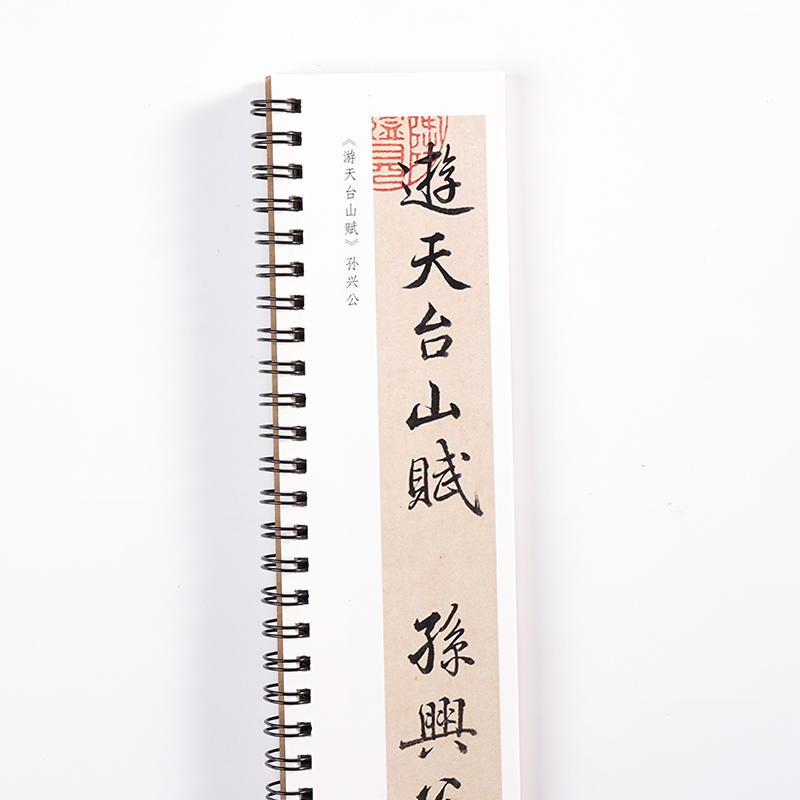 《游天台山赋》 孙兴公
遊天台山賦 孫興